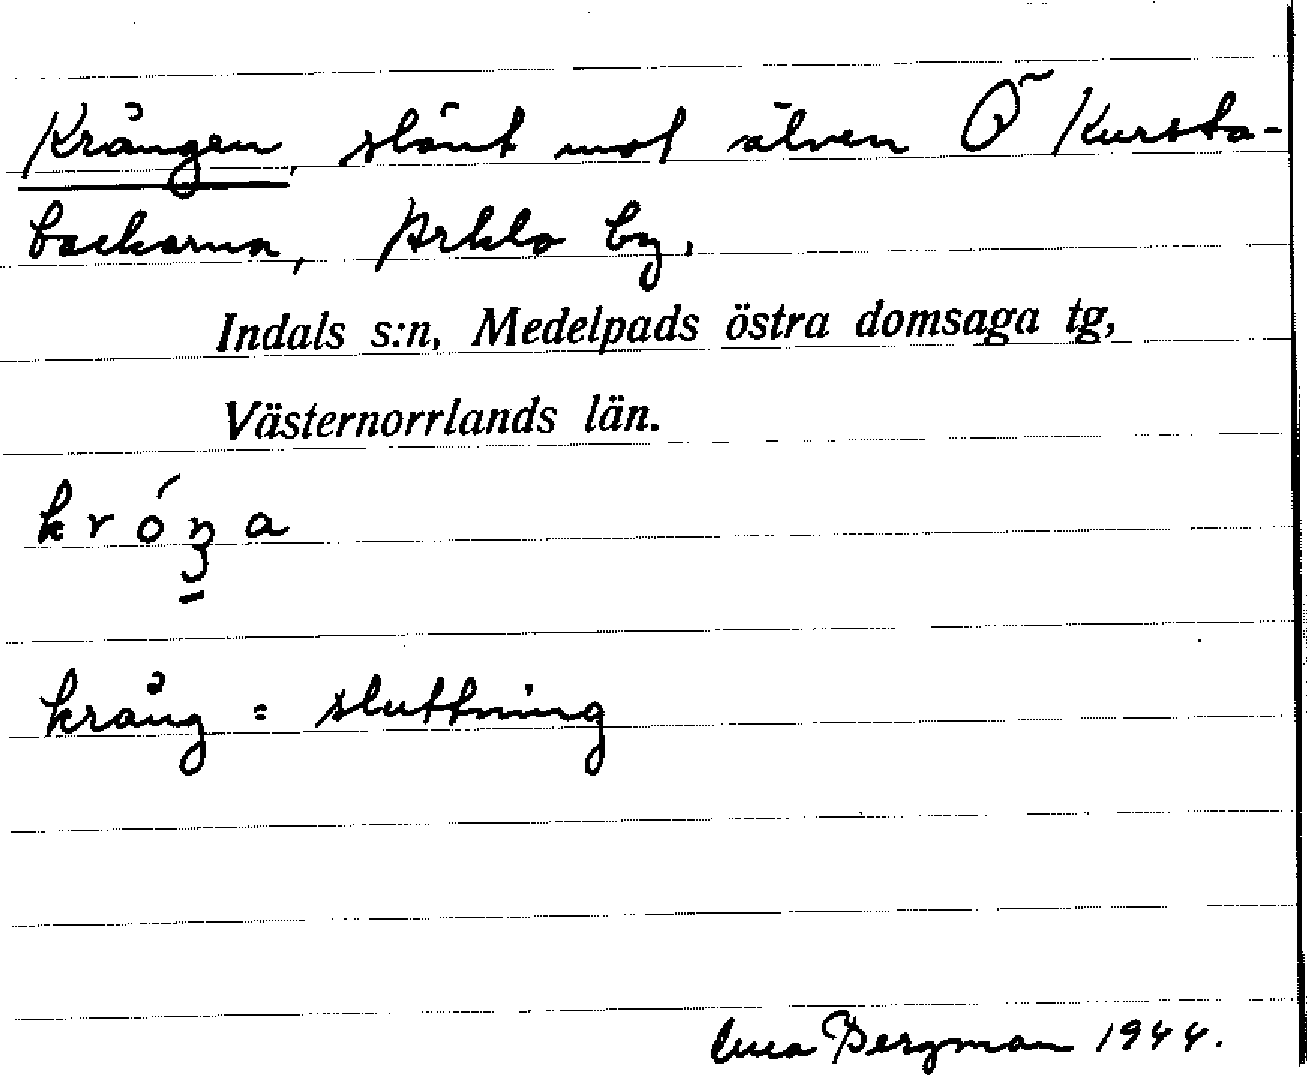 Krången, slänt mot älven Ö Kursta-
backarna, Arklo by.
Indals s:n, Medelpads östra domsaga tg,
Västernorrlands län.
króŋa
krång = sluttning
Bergman 1944.